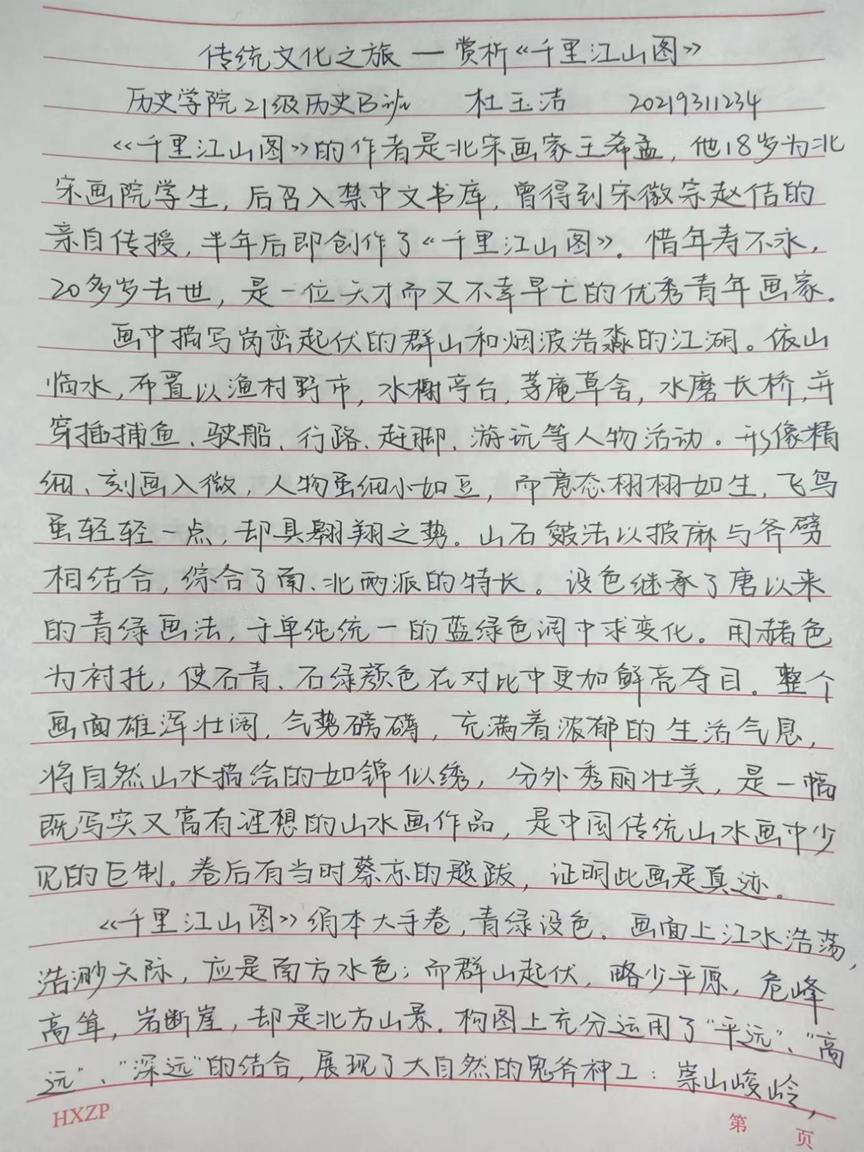 传统文化之旅 — 赏析《千里江山图》
历史学院21级历史B班 杜玉洁 20219311234
《千里江山图》的作者是北宋画家王希孟，他18岁为北
宋画院学生，后召入禁中文书库，曾得到宋徽宗赵佶的
亲自传授，半年后即创作了《千里江山图》。惜年寿不永，
20多岁去世，是一位天才而又不幸早亡的优秀青年画家。
画中描写岗峦起伏的群山和烟波浩淼的江湖。依山
临水，布置以渔村野市，水榭亭台，茅庵草舍，水磨长桥，并
穿插捕鱼、驶船、行路、赶脚、游玩等人物活动。形像精
细、刻画入微，人物虽细小如豆，而意态栩栩如生，飞鸟
虽轻轻一点，却具翱翔之势。山石皴法以披麻与斧劈
相结合，综合了南、北两派的特长。设色继承了唐以来
的青绿画法，于单纯统一的蓝绿色调中求变化。用赭色
为衬托，使石青、石绿颜色在对比中更加鲜亮夺目。整个
画面雄浑壮阔，气势磅礴，充满着浓郁的生活气息，
将自然山水描绘的如锦似绣，分外秀丽壮美，是一幅
既写实又富有理想的山水画作品，是中国传统山水画中少
见的巨制。卷后有当时蔡京的题跋，证明此画是真迹。
《千里江山图》绢本大手卷，青绿设色。画面上江水浩荡，
浩渺天际，应是南方水色；而群山起伏，略少平原，危峰
高耸，岩断崖，却是北方山景。构图上充分运用了“平远”、“高
远”、“深远”的结合，展现了大自然的鬼斧神工：崇山峻岭，
HXZP 第 页